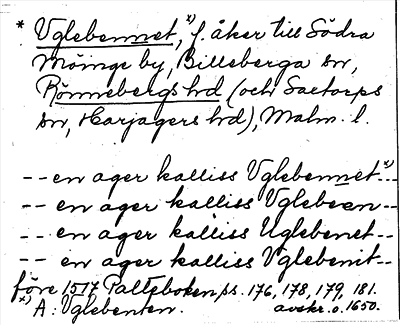 * Vglebennet, x) f. åker till Södra
Möinge by, Billeberga sn,
Rönnebergs hd (och Saxtorps
sn, Harjagers hd), Malm. l.
-- en ager kalliss Vglebennet x)--
-- en ager kalliss Vglebeen--
-- en ager kalliss Uglebenet--
-- en ager kalliss Vglebenit--
före 1517 Palteboken, ss. 176, 178, 179, 181.
x) A: Vglebenten. avskr. o. 1650.